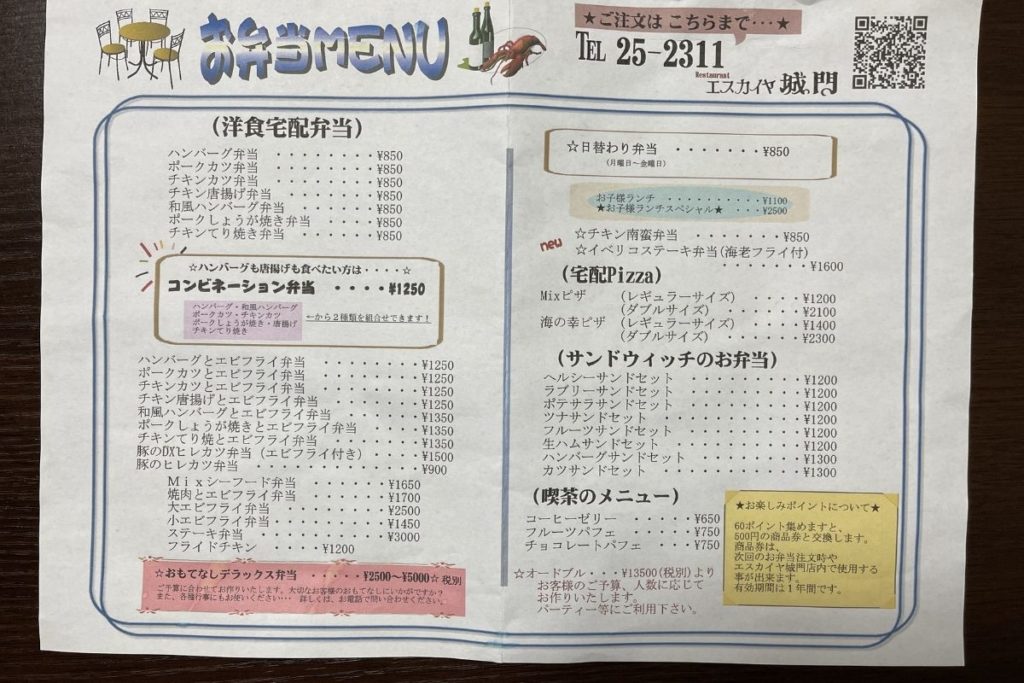 お弁当MENU
★ご注文は こちらまで・・・★
TEL 25-2311
Restaurant
エスカイヤ 城門
(洋食宅配弁当)
ハンバーグ弁当 ・・・・・・・・¥850
ポークカツ弁当 ・・・・・・・・¥850
チキンカツ弁当 ・・・・・・・・¥850
チキン唐揚げ弁当 ・・・・・・・¥850
和風ハンバーグ弁当 ・・・・・・¥850
ポークしょうが焼き弁当 ・・・・¥850
チキンてり焼き弁当 ・・・・・・¥850
☆ハンバーグも唐揚げも食べたい方は・・・・☆
コンビネーション弁当 ・・・・¥1250
ハンバーグ・和風ハンバーグ
ポークカツ・チキンカツ
ポークしょうが焼き・唐揚げ
チキンてり焼き
←から2種類を組合せできます!
ハンバーグとエビフライ弁当 ・・・・・・・・¥1250
ポークカツとエビフライ弁当 ・・・・・・・・¥1250
チキンカツとエビフライ弁当 ・・・・・・・・¥1250
チキン唐揚げとエビフライ弁当 ・・・・・・・¥1250
和風ハンバーグとエビフライ弁当 ・・・・・・¥1350
ポークしょうが焼きとエビフライ弁当 ・・・・¥1350
チキンてり焼とエビフライ弁当 ・・・・・・・¥1350
豚のDXヒレカツ弁当(エビフライ付き)・・・・・¥1500
豚のヒレカツ弁当 ・・・・・・・・・・・・・¥900
Mixシーフード弁当 ・・・・・・¥1650
焼肉とエビフライ弁当 ・・・・・¥1700
大エビフライ弁当 ・・・・・・・¥2500
小エビフライ弁当 ・・・・・・・¥1450
ステーキ弁当 ・・・・・・・・・¥3000
フライドチキン ・・・¥1200
☆おもてなしデラックス弁当 ・・・・・¥2500〜¥5000☆ 税別
ご予算に合わせてお作りいたします。大切なお客様のおもてなしにいかがですか?
また、各種行事にもお使いください・・・ 詳しくは、お電話で問い合わせください。
☆日替わり弁当 ・・・・・・・¥850
(月曜日〜金曜日)
お子様ランチ ・・・・・・・・・・・¥1100
★お子様ランチスペシャル★ ・・・・¥2500
☆チキン南蛮弁当 ・・・・・・・¥850
new
☆イベリコステーキ弁当(海老フライ付)
・・・・・・・¥1600
(宅配Pizza)
Mixピザ (レギュラーサイズ) ・・・・¥1200
(ダブルサイズ) ・・・・・¥2100
海の幸ピザ (レギュラーサイズ) ・・・・¥1400
(ダブルサイズ) ・・・・・¥2300
(サンドウィッチのお弁当)
ヘルシーサンドセット ・・・・・・・・・¥1200
ラブリーサンドセット ・・・・・・・・・¥1200
ポテサラサンドセット ・・・・・・・・・¥1200
ツナサンドセット ・・・・・・・・・・・¥1200
フルーツサンドセット ・・・・・・・・・¥1200
生ハムサンドセット ・・・・・・・・・・¥1200
ハンバーグサンドセット ・・・・・・・・¥1300
カツサンドセット ・・・・・・・・・・・¥1300
(喫茶のメニュー)
コーヒーゼリー ・・・・・¥650
フルーツパフェ ・・・・・¥750
チョコレートパフェ ・・・¥750
☆オードブル・・・¥13500(税別)より
お客様のご予算、人数に応じて
お作りいたします。
パーティー等にご利用下さい。
★お楽しみポイントについて★
60ポイント集めますと、
500円の商品券と交換します。
商品券は、
次回のお弁当注文時や
エスカイヤ城門店内で使用する
事が出来ます。
有効期間は1年間です。